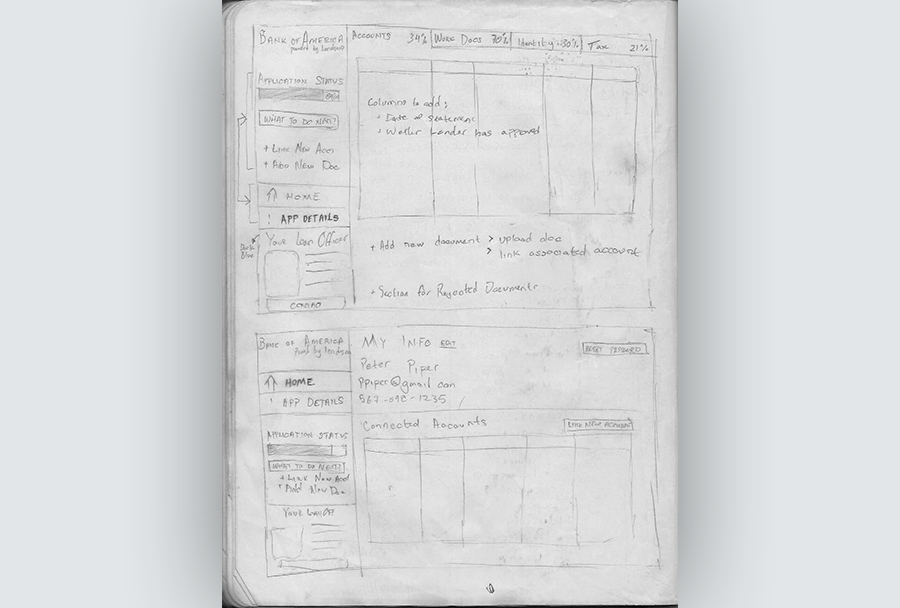 BANK OF AMERICA
powered by lendsmo
ACCOUNTS 34% WORK DOCS 70% Identity 30% Tax 21%
APPLICATION STATUS
WHAT TO DO NEXT?
+ LINK NEW ACC
+ ADD NEW DOC
HOME
! APP DETAILS
Dark Blue
YOUR LOAN OFFICER
CONTACT
Columns to add:
Date of Statement
Wether Lender has approved
+ Add new document > upload doc
> link associated account
+ Section for Rejected Documents
BANK OF AMERICA
by lendsmo
HOME
! APP DETAILS
APPLICATION STATUS
WHAT TO DO NEXT?
+ LINK NEW ACC
+ ADD NEW DOC
YOUR
MY INFO EDIT
Peter Piper
PPiper@gmail.com
RESET PASSWORD
Connected Accounts
LINK NEW ACCOUNT